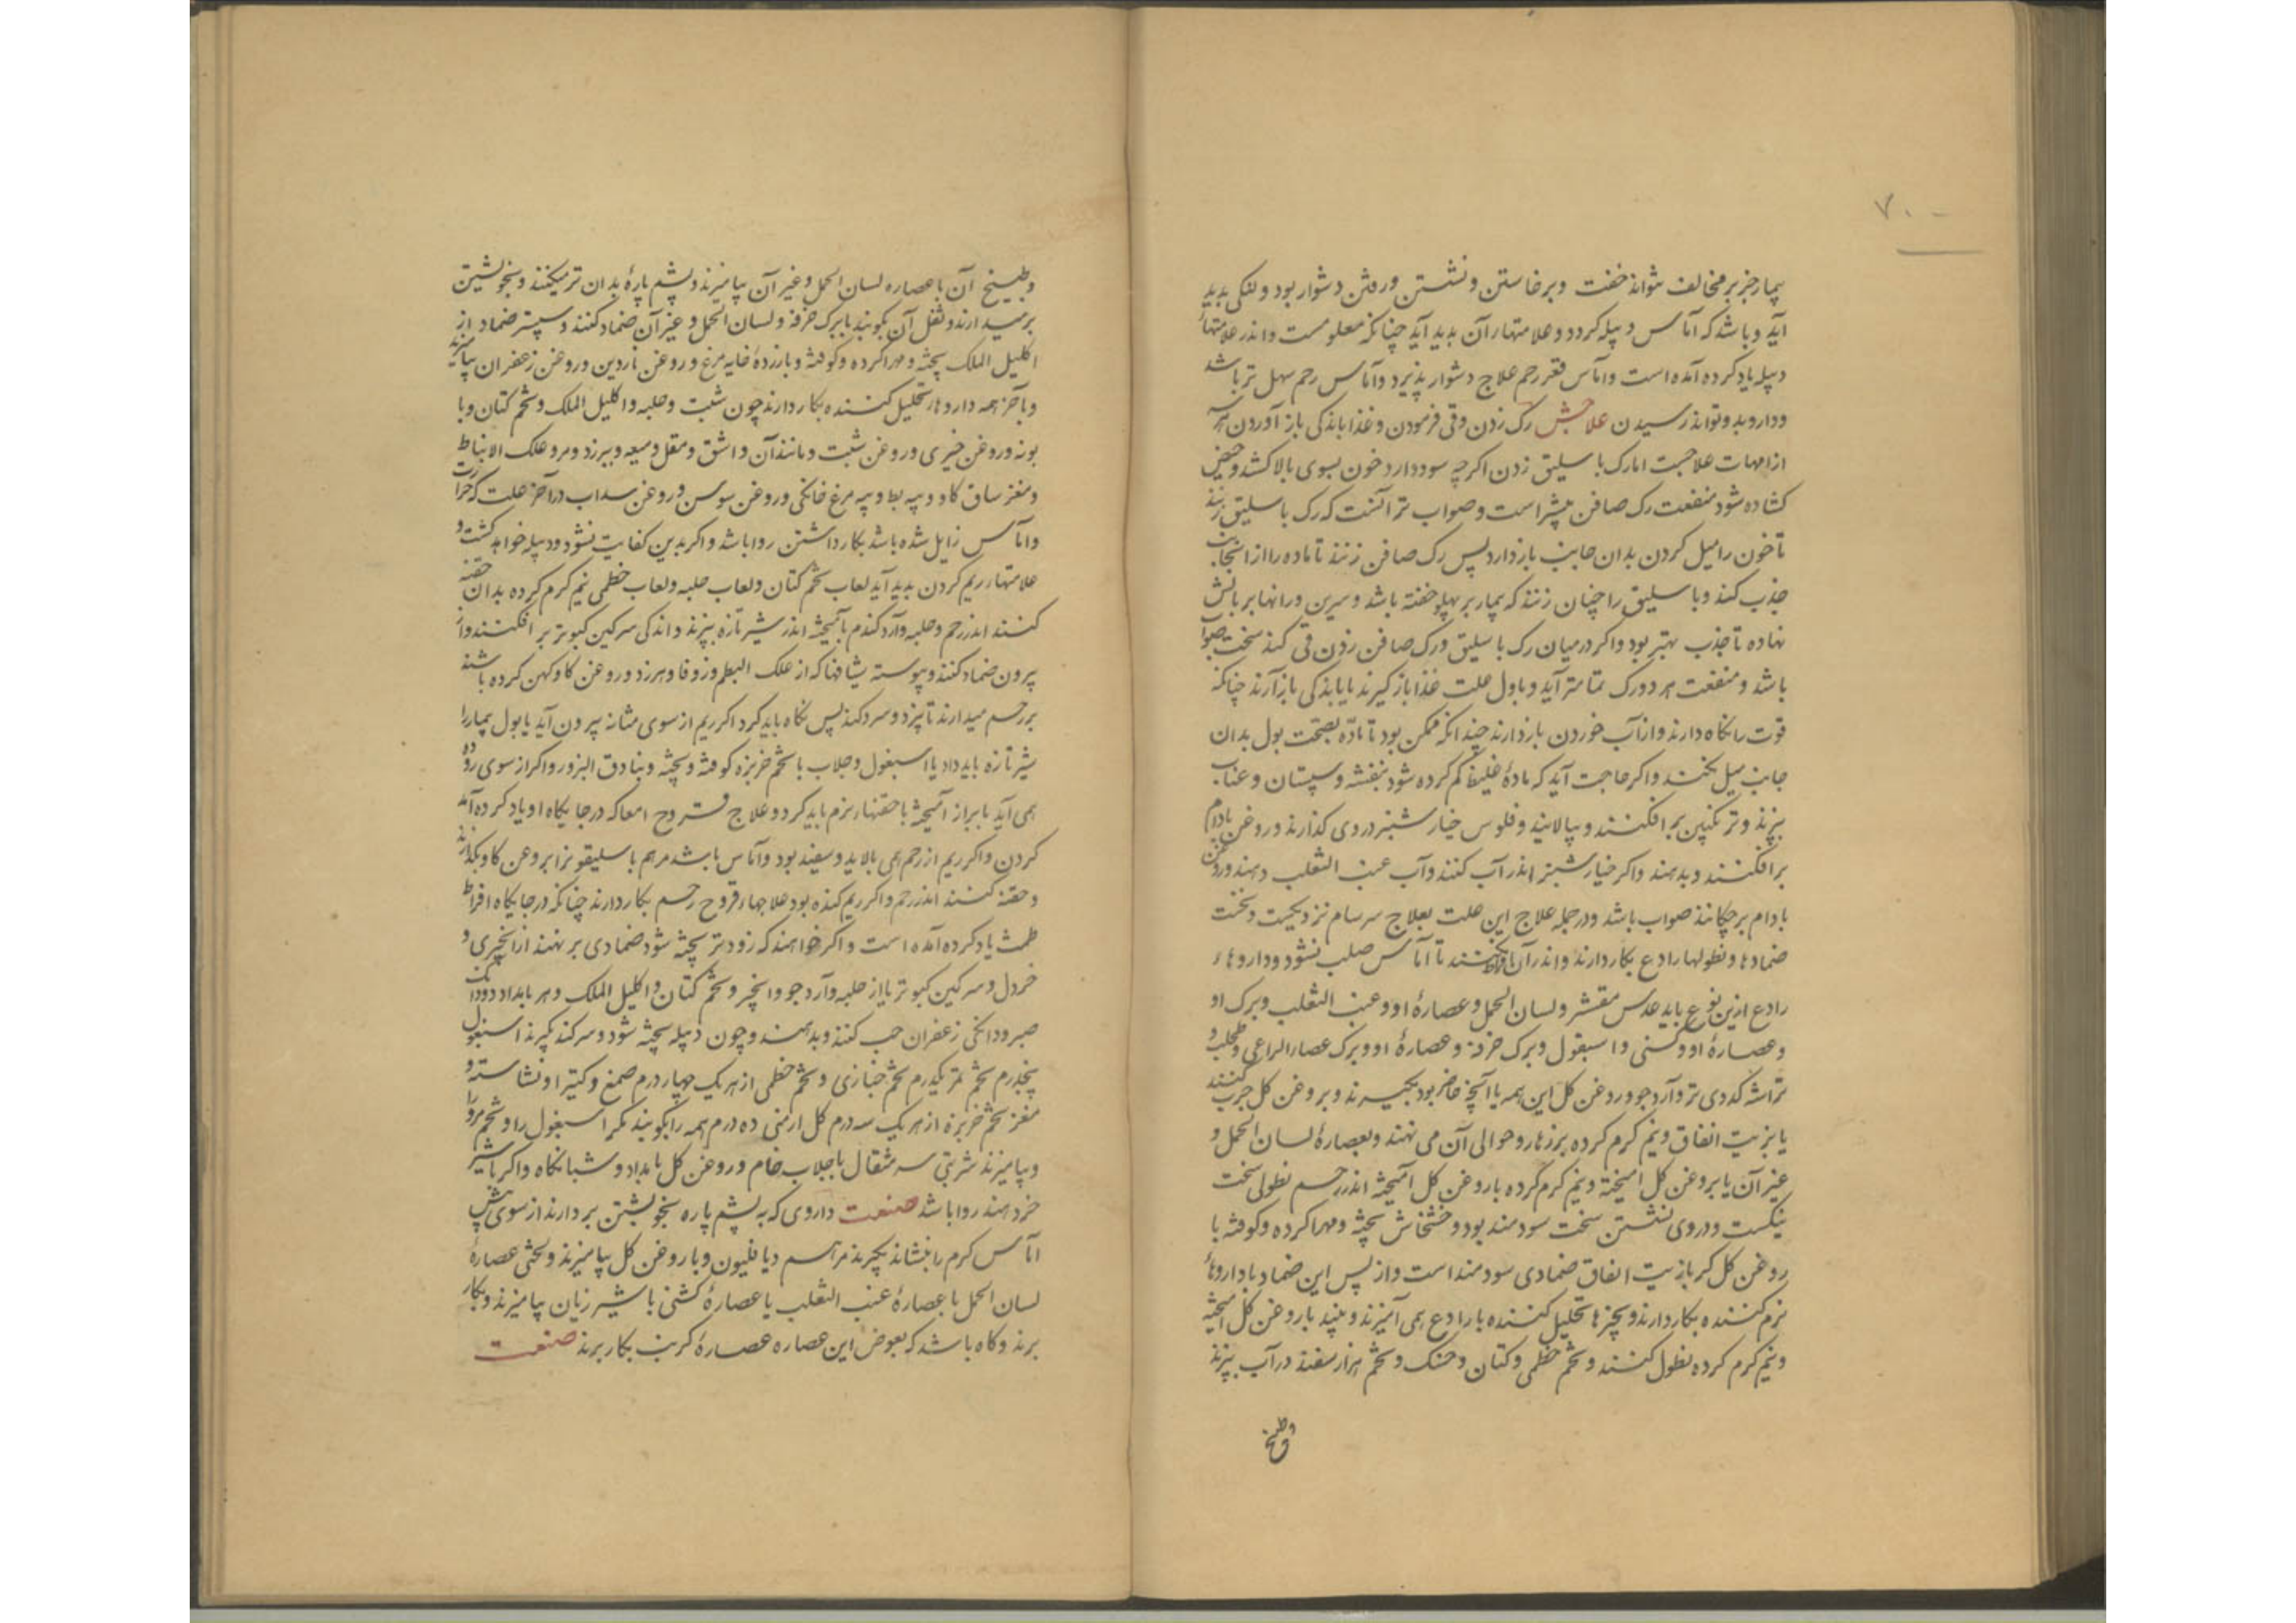 ۷۰۰
بیمار جز بر مخالف نتواند خفت و برخاستن و نشستن و رفتن دشوار بود و لنکی بدید
آید و باشد که آماس دبیله کردد و علامتهار آن بدید آید چنانکه معلومست و اندر علامتهاء
دبیله یاد کرده آمده است و اماس قعر رحم علاج دشوار پذیرد و آماس رحم سهل تر باشد
و دارو بدو تواند رسیدن علاجش رک زدن و قی فرمودن و غذا باندکی باز آوردن
از امهات علاجست اما رک باسلیق زدن اکرچه سود دارد خون بسوی بالا کشد و حیض
کشاده شود منفعت رک صافن بیشتر است و صواب تر آنست که رک باسلیق زنند
تا خون را میل کردن بدان جانب باز دارد پس رک صافن زنند تا ماده را از انجانب
جذب کند و باسلیق را چنان زنند که بیمار بر پهلو خفته باشد و سرین و رانها بر بالش
نهاده تا جذب بهتر بود و اکر در میان رک باسلیق و رک صافن زدن قی کند سخت صواب
باشد و منفعت هر دو رک تمامتر آید و باول علت غذا باز کیرند یا باندکی باز آرند چنانکه
قوت را نکاه دارند و از آب خوردن باز دارند چندانکه ممکن بود تا مادّه بصحبت بول بدان
جانب میل نکند و اکر حاجت آید که مادهٔ غلیظ کم کرده شود بنفشه و سپستان و عناب
بپزند و ترنکبین برافکنند و بپالایند و فلوس خیارشنبر در وی کدارند و روغن بادام
برافکنند و بدهند و اکر خیارشنبر اندر آب کنند و آب عنب الثعلب دهند و روغن
بادام برچکانند صواب باشد و در جمله علاج این علت بعلاج سرسام نزدیکست و نخست
ضمادها و نطولها رادع بکار دارند و اندر آن افراط نکنند تا آماس صلب نشود و داروهاء
رادع ازین نوع باید عدس مقشر و لسان الحمل و عصارهٔ او و عنب الثعلب و برک او
و عصارهٔ او و کسنی و اسبغول و برک خرفه و عصارهٔ او و برک عصار الراعی و طحلب و
تراشه کدوی تر و آرد جو و روغن کل این همه یا آنچه حاضر بود بکیرند و بروغن کل چرب کنند
یا بزیت انفاق و نیم کرم کرده بر زهار و حوالی آن می نهند و بعصارهٔ لسان الحمل و
غیر آن یا بروغن کل امیخته و نیم کرم کرده با روغن کل آمیخته اندر رحم نطولی سخت
نیکست و در وی نشستن سخت سودمند بود و خشخاش پخته و مهرا کرده و کوفته با
روغن کل کر بازیت انفاق ضمادی سودمند است و از پس این ضماد با داروهاء
نرم کننده بکار دارند و چیزها تحلیل کننده با رادع همی آمیزند و بپند با روغن کل امیخته
و نیم کرم کرده نطول کنند و تخم خطمی و کتان و حسک و تخم هزار سفند در آب بپزند
و طبیخ
و طبیخ آن با عصاره لسان الحمل و غیر آن بیامیزند و پشم پارهٔ بدان تر میکنند و بخویشتن
برمیدارند و ثفل آن بکوبند با برک خرفه و لسان الحمل و غیر آن ضماد کنند و سپستر ضماد از
اکلیل الملک پخته و مهرا کرده و کوفته و با زردهٔ خایه مرغ و روغن ناردین و روغن زعفران بیامیزند
و باخر همه داروهاء تحلیل کننده بکار دارند چون شبت و حلبه و اکلیل الملک و تخم کتان و با
بونه و روغن خیری و روغن شبت و مانند آن و اشق و مقل و میعه و بیرزد و مر و علک الانباط
و مغز ساق کاو و پیه بط و پیه مرغ خانکی و روغن سوسن و روغن سداب در آخر علت که حرارت
و اماس زایل شده باشد بکار داشتن روا باشد و اکر بدین کفایت نشود و دبیله خواهد کشت و
علامتهاء ریم کردن بدید آید لعاب تخم کتان و لعاب حلبه و لعاب خطمی نیم کرم کرده بدان حقنه
کنند اندر رحم و حلبه و آرد کندم بآمیخته اندر شیر تازه بپزند و اندکی سرکین کبوتر برافکنند و از
بیرون ضماد کنند و پیوسته شیافها که از علک البطم و زوفا و بیرزد و روغن کاو کهن کرده باشند
بر رحم میدارند تا بپزد و سر کند پس نکاه باید کرد اکر ریم از سوی مثانه بیرون آید با بول بیمار را
شیر تازه باید داد یا اسبغول و جلاب با تخم خربزه کوفته و پخته و بنادق البزور و اکر از سوی روده
همی آید با براز آمیخته با حقنهاء نرم باید کرد و علاج قروح امعا که در جایکاه او یاد کرده آمد
کردن و اکر ریم از رحم همی بالاید و سفید بود و آماس باشد مرهم باسلیقون را بروغن کاو بکدازند
و حقنه کنند اندر رحم و اکر ریم کنده بود علاجهاء قروح رحم بکار دارند چنانکه در جایکاه افراط
طمث یاد کرده آمده است و اکر خواهند که زودتر پخته شود ضمادی برنهند از انجیر و
خردل و سرکین کبوتر یا از حلبه و آرد جو و انجیر و تخم کتان و اکلیل الملک و هر بامداد دو دانک
صبر و دانکی زعفران حب کنند و بدهند و چون دبیله پخته شود و سر کند بکیرند اسبغول
پنجدرم تخم مر یکدرم تخم خبازی و تخم خطمی از هر یک چهار درم صمغ و کتیرا و نشاسته و
مغز تخم خربزه از هر یک سه درم کل ارمنی ده درم همه را بکوبند مکر اسبغول را و تخم مرو را
و بیامیزند شربتی سه مثقال با جلاب خام و روغن کل بامداد و شبانکاه و اکر با شیر
خر دهند روا باشد صنعت داروی که به پشم پاره بخویشتن بردارند از سوی پیش
آماس کرم را بنشاند بکیرند مرهم دیاخلیون و با روغن کل بیامیزند و لختی عصارهٔ
لسان الحمل یا عصارهٔ عنب الثعلب یا عصارهٔ کشنی با شیر زنان بیامیزند و بکار
برند و کاه باشد که بعوض این عصاره عصارهٔ کرنب بکار برند صنعت